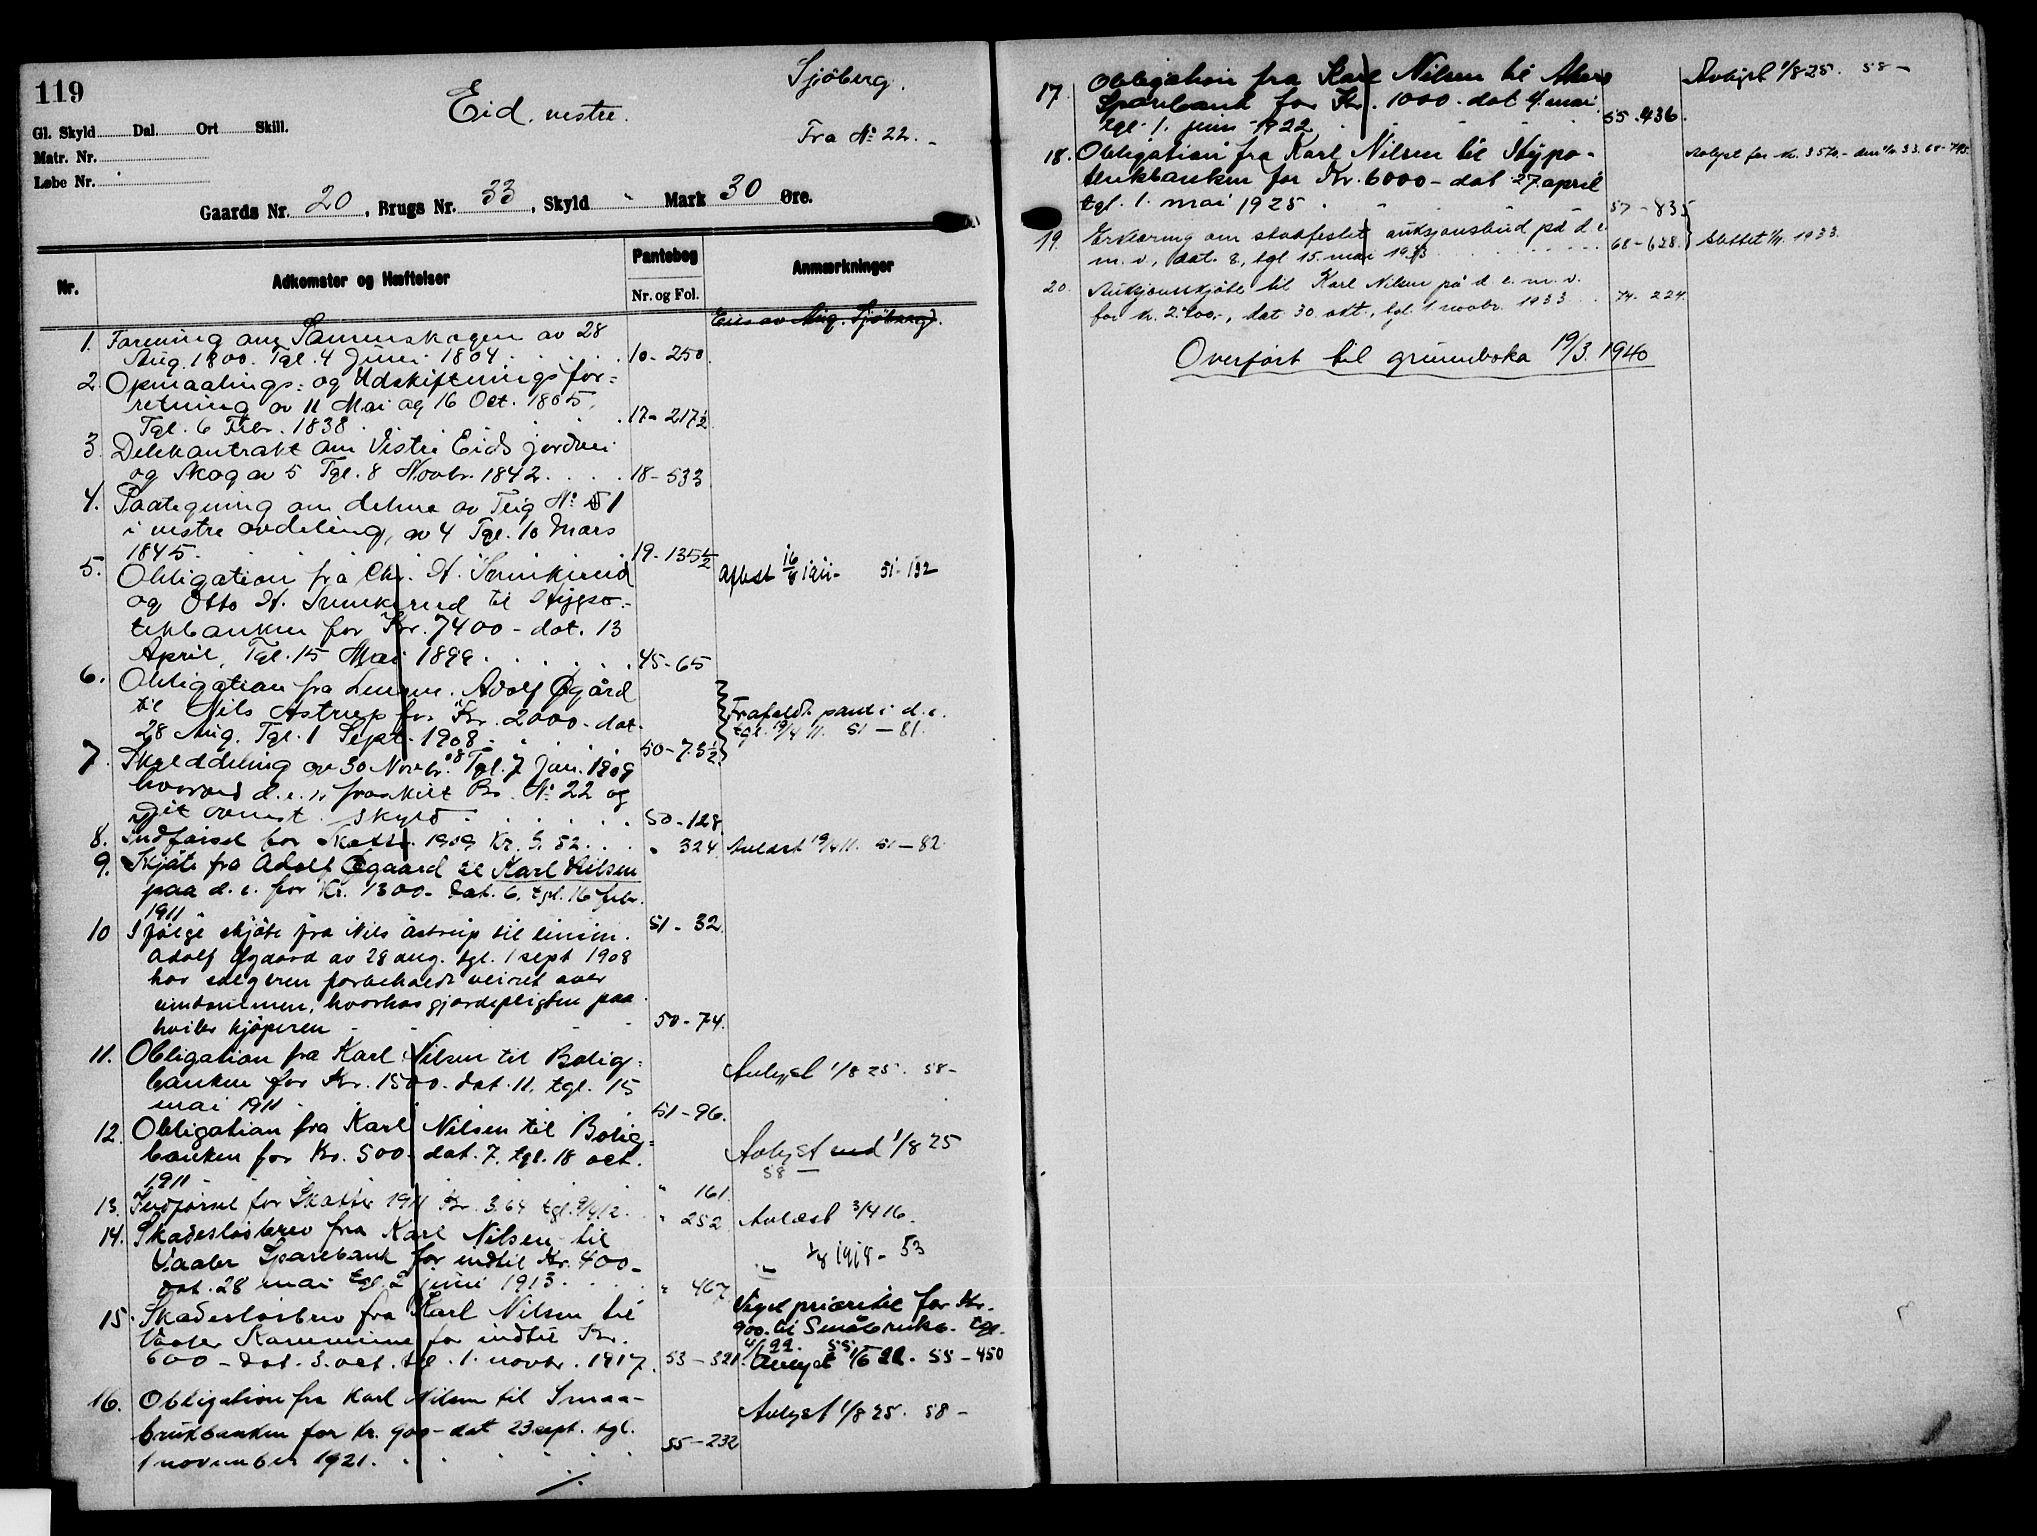 119
Eid. vestre.
Sjöberg.
Gl. Skyld Dal. Ort Skill.
Matr. Nr.
Løbe Nr.
Fra No 22.
Gaards Nr. 20, Brugs Nr. 33, Skyld - Mark 30 Øre.
Nr. Adkomster og Hæftelser Pantebog Anmærkninger
Nr. og Fol.
Eies av Aug. Sjöberg.
1. Forening om av 28
Aug. 1800. Tgl. 4 Juni 1804 10-250.
2. Opmaalings- og Udskiftningsfor-
retning av 11 Mai og 16 Oct. 1805.
Tgl. 6 Febr. 1838 17-217½
3. Delekontrakt om Vestre Eids jordvei
og Skog av 5 Tgl. 8 Novbr. 1842 18-533
4. Paategning om delene av Teig No 51
i vestre avdeling, av 4 Tgl. 10 Mars
1845. 19-135½
5. Obligation fra Chr. H.
og Otto H. til Hypo-
tekbanken for Kr. 7400 - dat. 13
April, Tgl. 15 Mai 1899. 45-65
Aflæst 16/8 1911- 51-132
6. Obligation fra Adolf Øgård
til Nils Astrup for Kr. 2000 - dat.
28 Aug. Tgl. 1 Sept. 1908 50-73½
Frafaldt pant i d.e.
tgl. 19/4 11. 51-81.
7. Skylddeling av 30 Novbr. 08 Tgl. 7 Jan. 1909
hvorved d.e. er fraskilt Br. No 22 og
git ovenst. skyld 50-128
8. Indførsel for Skatter 1909 Kr. 5.52 " 324. Avlæst 19/4 11. 51-82
9. Skjøte fra Adolf Øgaard til Karl Nilsen
paa d.e. for Kr. 1300- dat. 6, tgl. 16 febr.
1911 51-32.
10 Ifølge skjøte fra Nils Astrup til
Adolf Øgaard av 28 aug. tgl. 1 sept 1908
har selgeren forbeholdt veiret over
hvorhos gjerdepligten paa
hviler kjøperen 50-74.
11. Obligation fra Karl Nilsen til Bolig-
banken for Kr. 1500- dat. 11. tgl. 15
mai 1911 51-96.
Avlyst 1/8 25. 58-
12. Obligation fra Karl Nilsen til Bolig-
banken for Kr. 500- dat. 7. tgl. 18 oct.
1911 " 161.
Avlyst 1/8 25
58-
13. Indførsel for Skatter 1911 Kr. 3.64 tgl. 9/4 12. " 252 Avlæst 3/4 16.
14. Skadesløsbrev fra Karl Nilsen til
Vaaler Sparebank for indtil Kr. 400-
dat. 28 mai tgl. 2 juni 1913 " 467
" 1/8 1918 - 53
15. Skadesløsbrev fra Karl Nilsen til
Vaaler Kommune for indtil Kr.
600- dat. 3. oct. tgl. 1. novbr. 1917. 53-321.
Veget prioritet for Kr.
900. til Småbruksb. tgl.
Avlyst 1/6 22. 55-450
16. Obligation fra Karl Nilsen til Smaa-
brukbanken for kr. 900- dat 23 sept. tgl.
1 november 1921. 55-232
Avlyst 1/8 25. 58-
17. Obligation fra Karl Nilsen til
Sparebank for Kr. 1000- dat 4. mai
tgl. 1. juni 1922 55-436.
Avlyst 1/8 25. 58-
18. Obligation fra Karl Nilsen til Hypo-
tekbanken for Kr. 6000- dat 27. april
tgl. 1. mai 1925 57-835
19. Erklæring om stadfestet auksjonsbud på d.e.
m.v., dat. 8, tgl 15. mai 1933 68-628. Slettet 1/11 1933.
20. Auksjonsskjøte til Karl Nilsen på d.e.m.v.
for kr. 2400,-, dat 30. okt., tgl 1 novbr. 1933 74-224.
Overført til grunnboka 19/3 1940